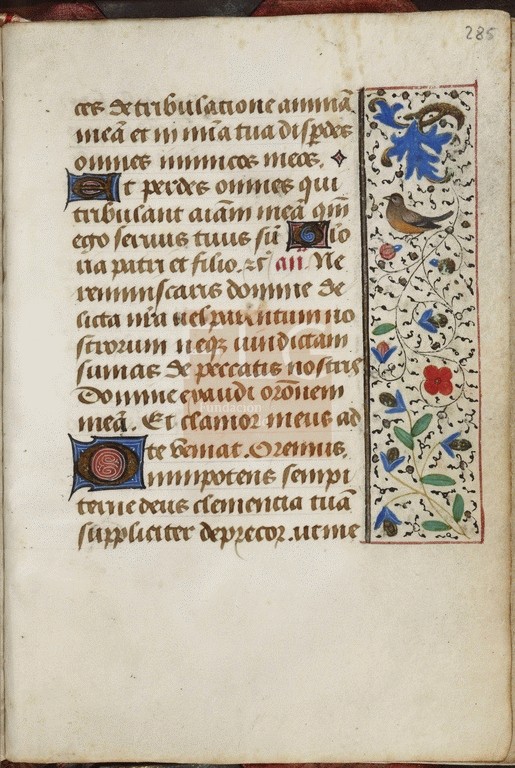 285
ces de tribulatione animā
meā et in mīa tua disp̱des
omnes inimicos meos.
Et perdes omnes qui
tribulant aīam meā qm̄
ego servus tuus sū Glo
ria patri et filio. ⁊c̄ añ. Ne
reminiscaris domine de
licta nr̄a vel parentum no
strorum neqꝫ vindictam
sumas de peccatis nostris
Domine exaudi orōnem
meā. Et clamor meus ad
te veniat. Oremus.
Omnipotens sempi
terne deus clementia tuā
suppliciter deprecor. ut me
Fundación